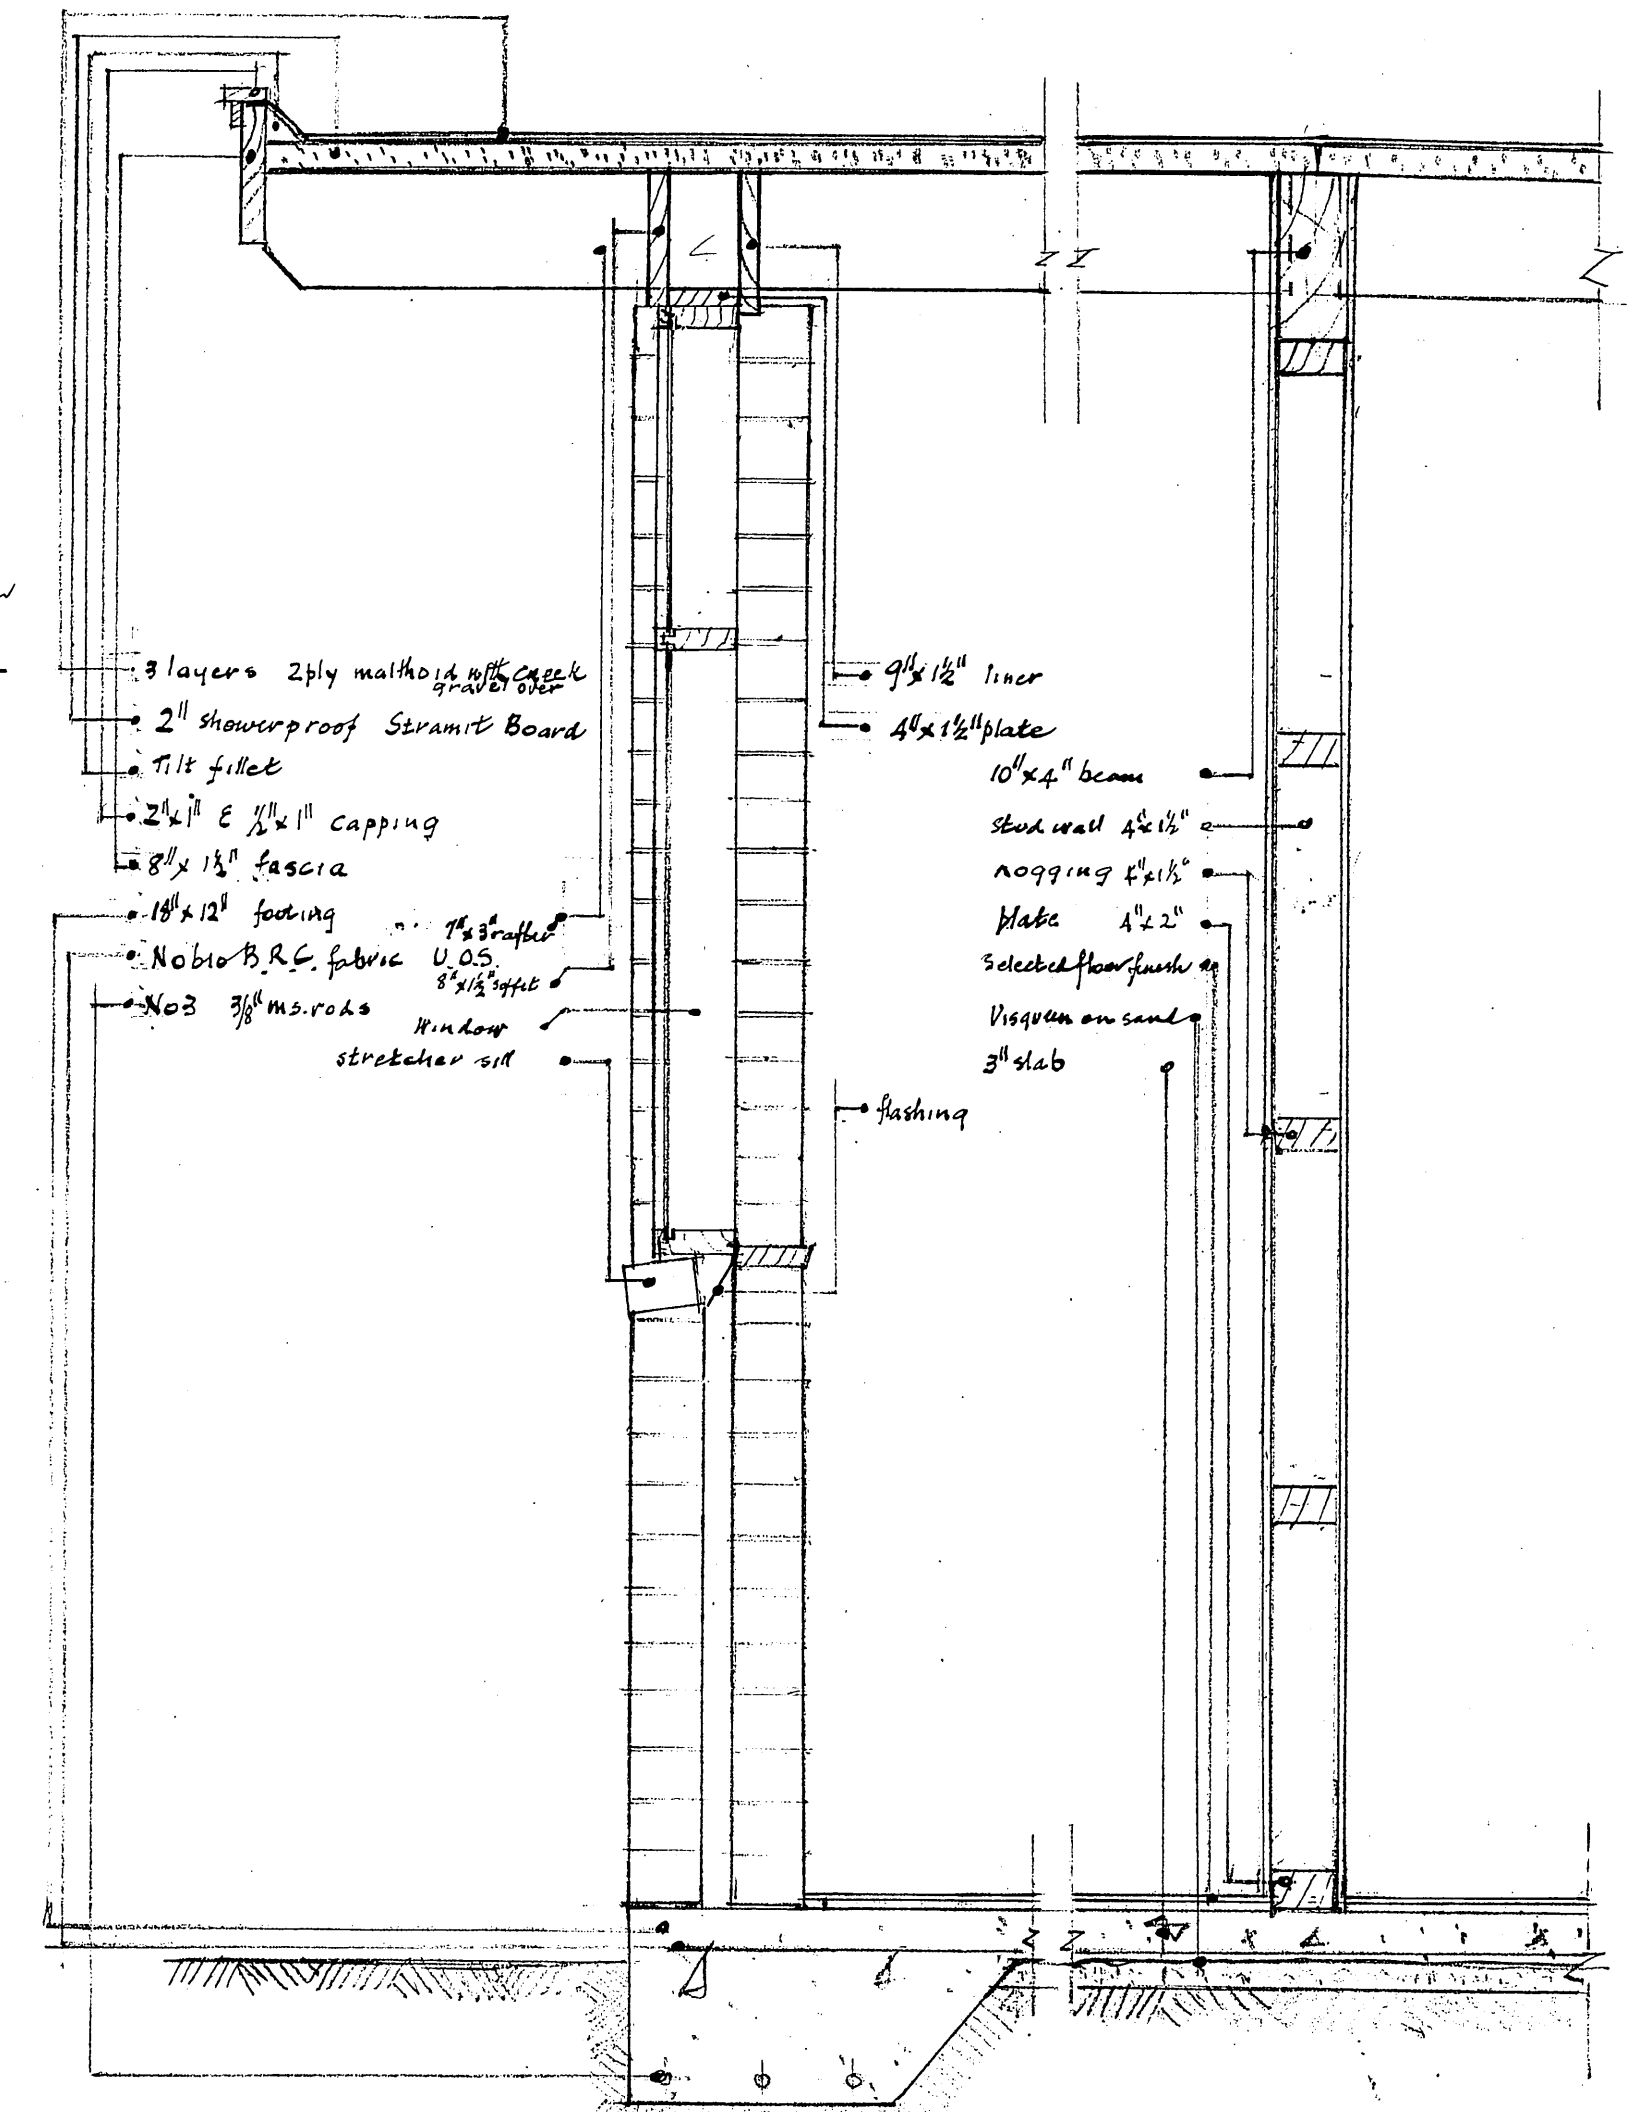 3 layers 2ply malthoid with creek
gravel over
2" showerproof Stramit Board
Tilt fillet
2"x1" & ½"x1" capping
8"x 1½" fascia
18"x 12" footing
No610 B.R.C. fabric U.O.S.
No3 3/8" m.s. rods
7"x3" rafter
8"x1½" soffit
Window
stretcher sill
9"x1½" liner
4"x1½" plate
flashing
10"x4" beam
stud wall 4"x1½"
nogging 4"x1½"
plate 4"x2"
selected floor finish
Visqueen on sand
3" slab